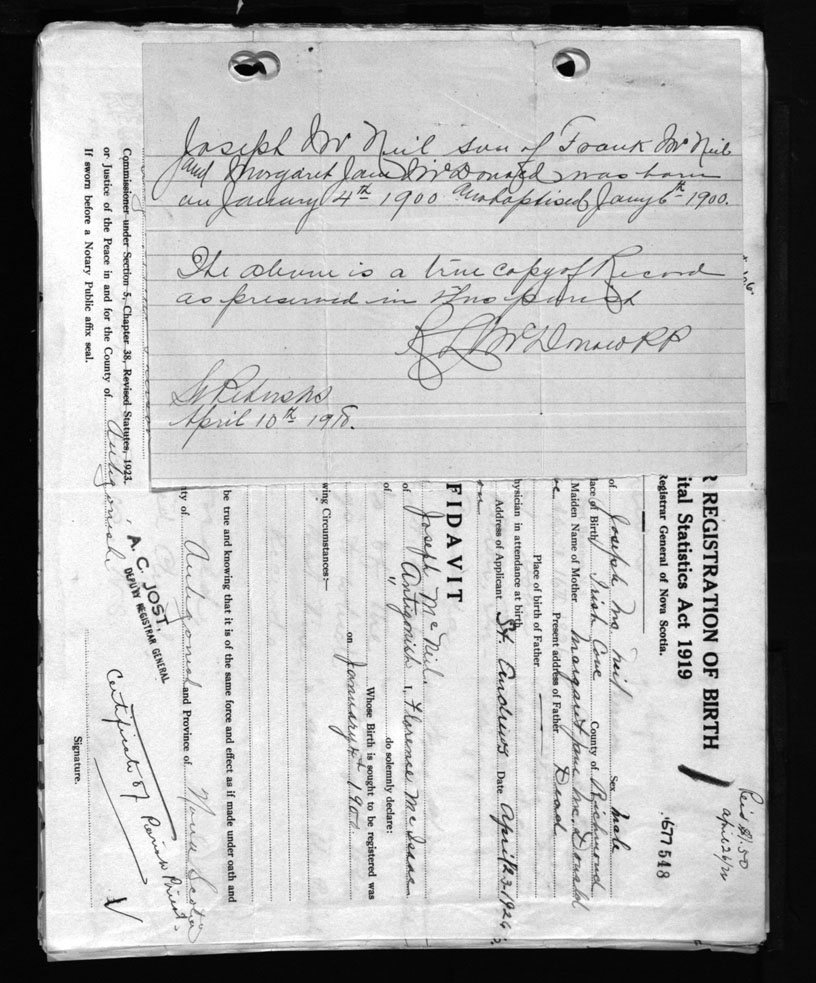 Joseph Mc Neil son of Frank Mc Neil
and Margaret Jane McDonald was born
on January 4th 1900 and baptised Jany 6th 1900.
The above is a true copy of Record
as preserved in this parish
R L McDonald PP
St Peters
April 10th
R REGISTRATION OF BIRTH
ital Statistics Act 1919
Registrar General of Nova Scotia.
677548
April 26/26
of Joseph Mc Neil Sex Male
lace of Birth Irish Cove County of Richmond
Maiden Name of Mother Margaret Jane Mc Donald
Present address of Father Dead
Place of birth of Father
hysician in attendance at birth
Address of Applicant St. Andrews Date April 23, 1926
FIDAVIT
of Joseph McNeil.
of Antigonish I, Florence McIsaac
of " do solemnly declare:
Whose Birth is sought to be registered was
on January 4 1900
wing Circumstances:—
be true and knowing that it is of the same force and effect as if made under oath and
ty of Antigonish and Province of Nova Scotia
A. C. JOST,
DEPUTY REGISTRAR GENERAL
Certificate of Parish Priest
Signature.
Commissioner under Section 5, Chapter 38, Revised Statutes, 1923.
or Justice of the Peace in and for the County of Antigonish
If sworn before a Notary Public affix seal.